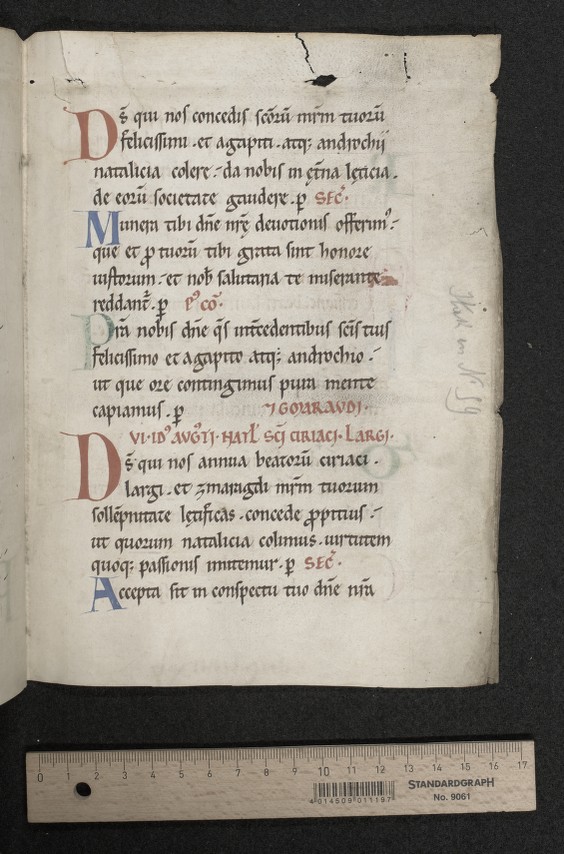 Ds̄ qui nos concedis scōrū mr̄m tuorū
felicissimi . et agapiti . atq; androchii
natalicia colere . da nobis in ęt̄na lęticia .
de eorū societate gaudere . p̄ SEC̄ .
Munera tibi dn̄e nrē deuotionis offerim⁹ .
que et ꝓ tuorū tibi grata sint honore
iustorum . et nob̄ salutaria te miserante
reddant̄ . p̄ P⁹ CŌ .
Pr̄a nobis dn̄e q̄s int̄cedentibus scīs tuis
felicissimo et agapito atq; androchio .
ut que ore contingimus pura mente
capiamus . p̄
VI . ID⁹ AVḠTI . NAT̄L SC̄I CIRIACI . LARGI .
Ds̄ qui nos annua beatorū ciriaci .
largi . et zmaragdi mr̄m tuorum
sollēpnitate lętificas . concede ꝓpitius .
ut quorum natalicia colimus . uirtutem
quoq; passionis imitemur . p̄ SEC̄ .
Accepta sit in conspectu tuo dn̄e nr̄a
0 1 2 3 4 5 6 7 8 9 10 11 12 13 14 15 16 17
4 014509 011197
STANDARDGRAPH
No. 9061